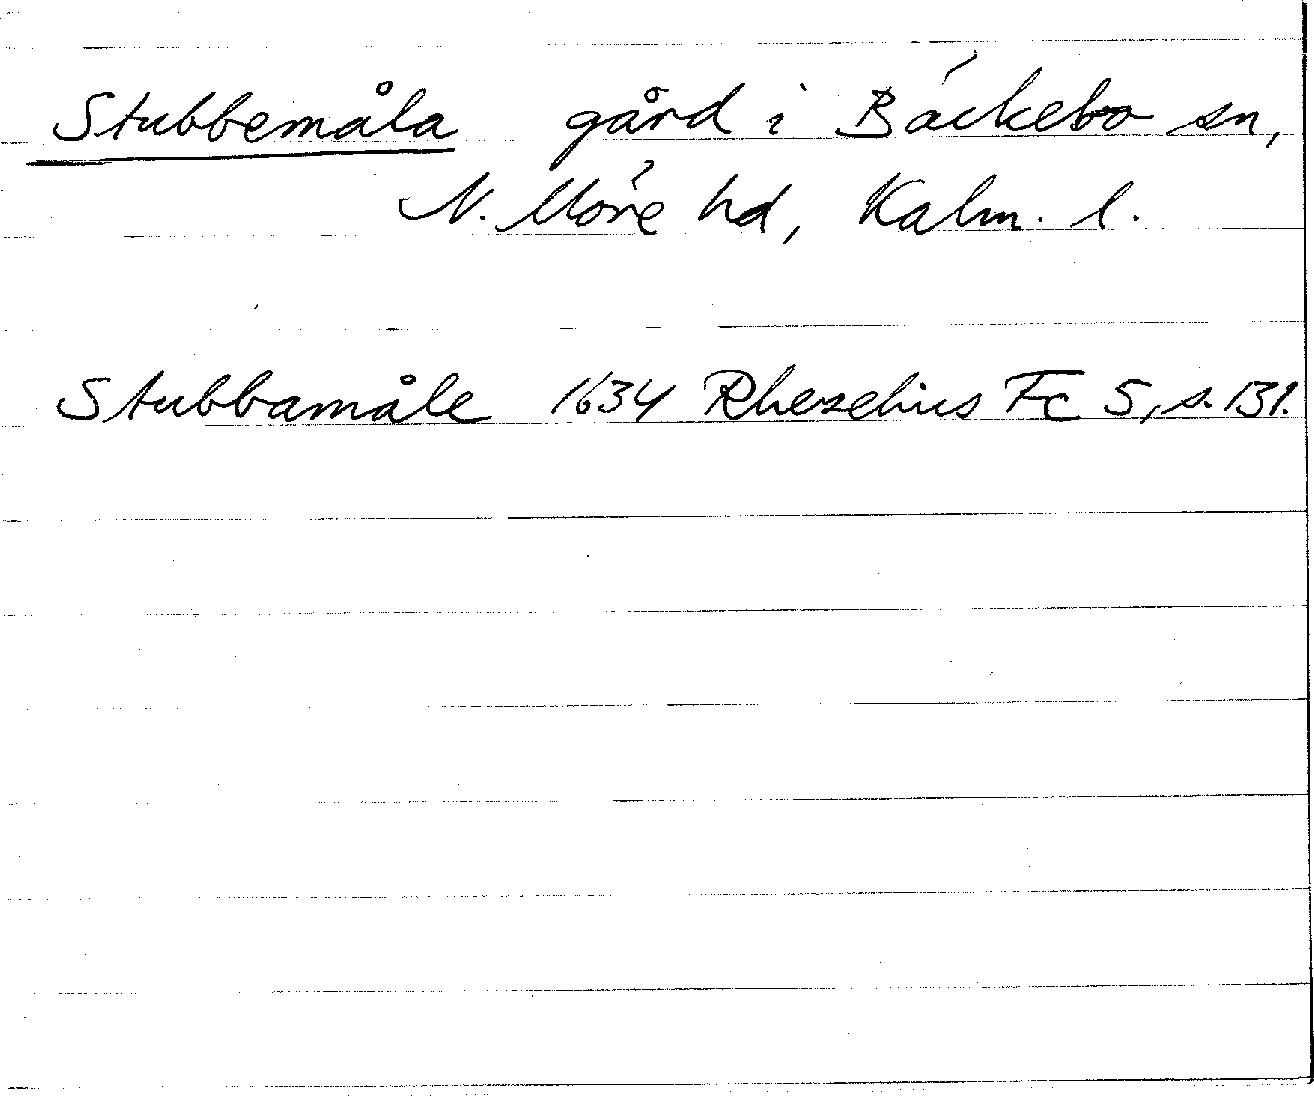 Stubbemåla gård i Bäckebo sn,
N. Möre hd, Kalm. l.
Stubbamåle 1634 Rhezelius Fc 5, s. 131.